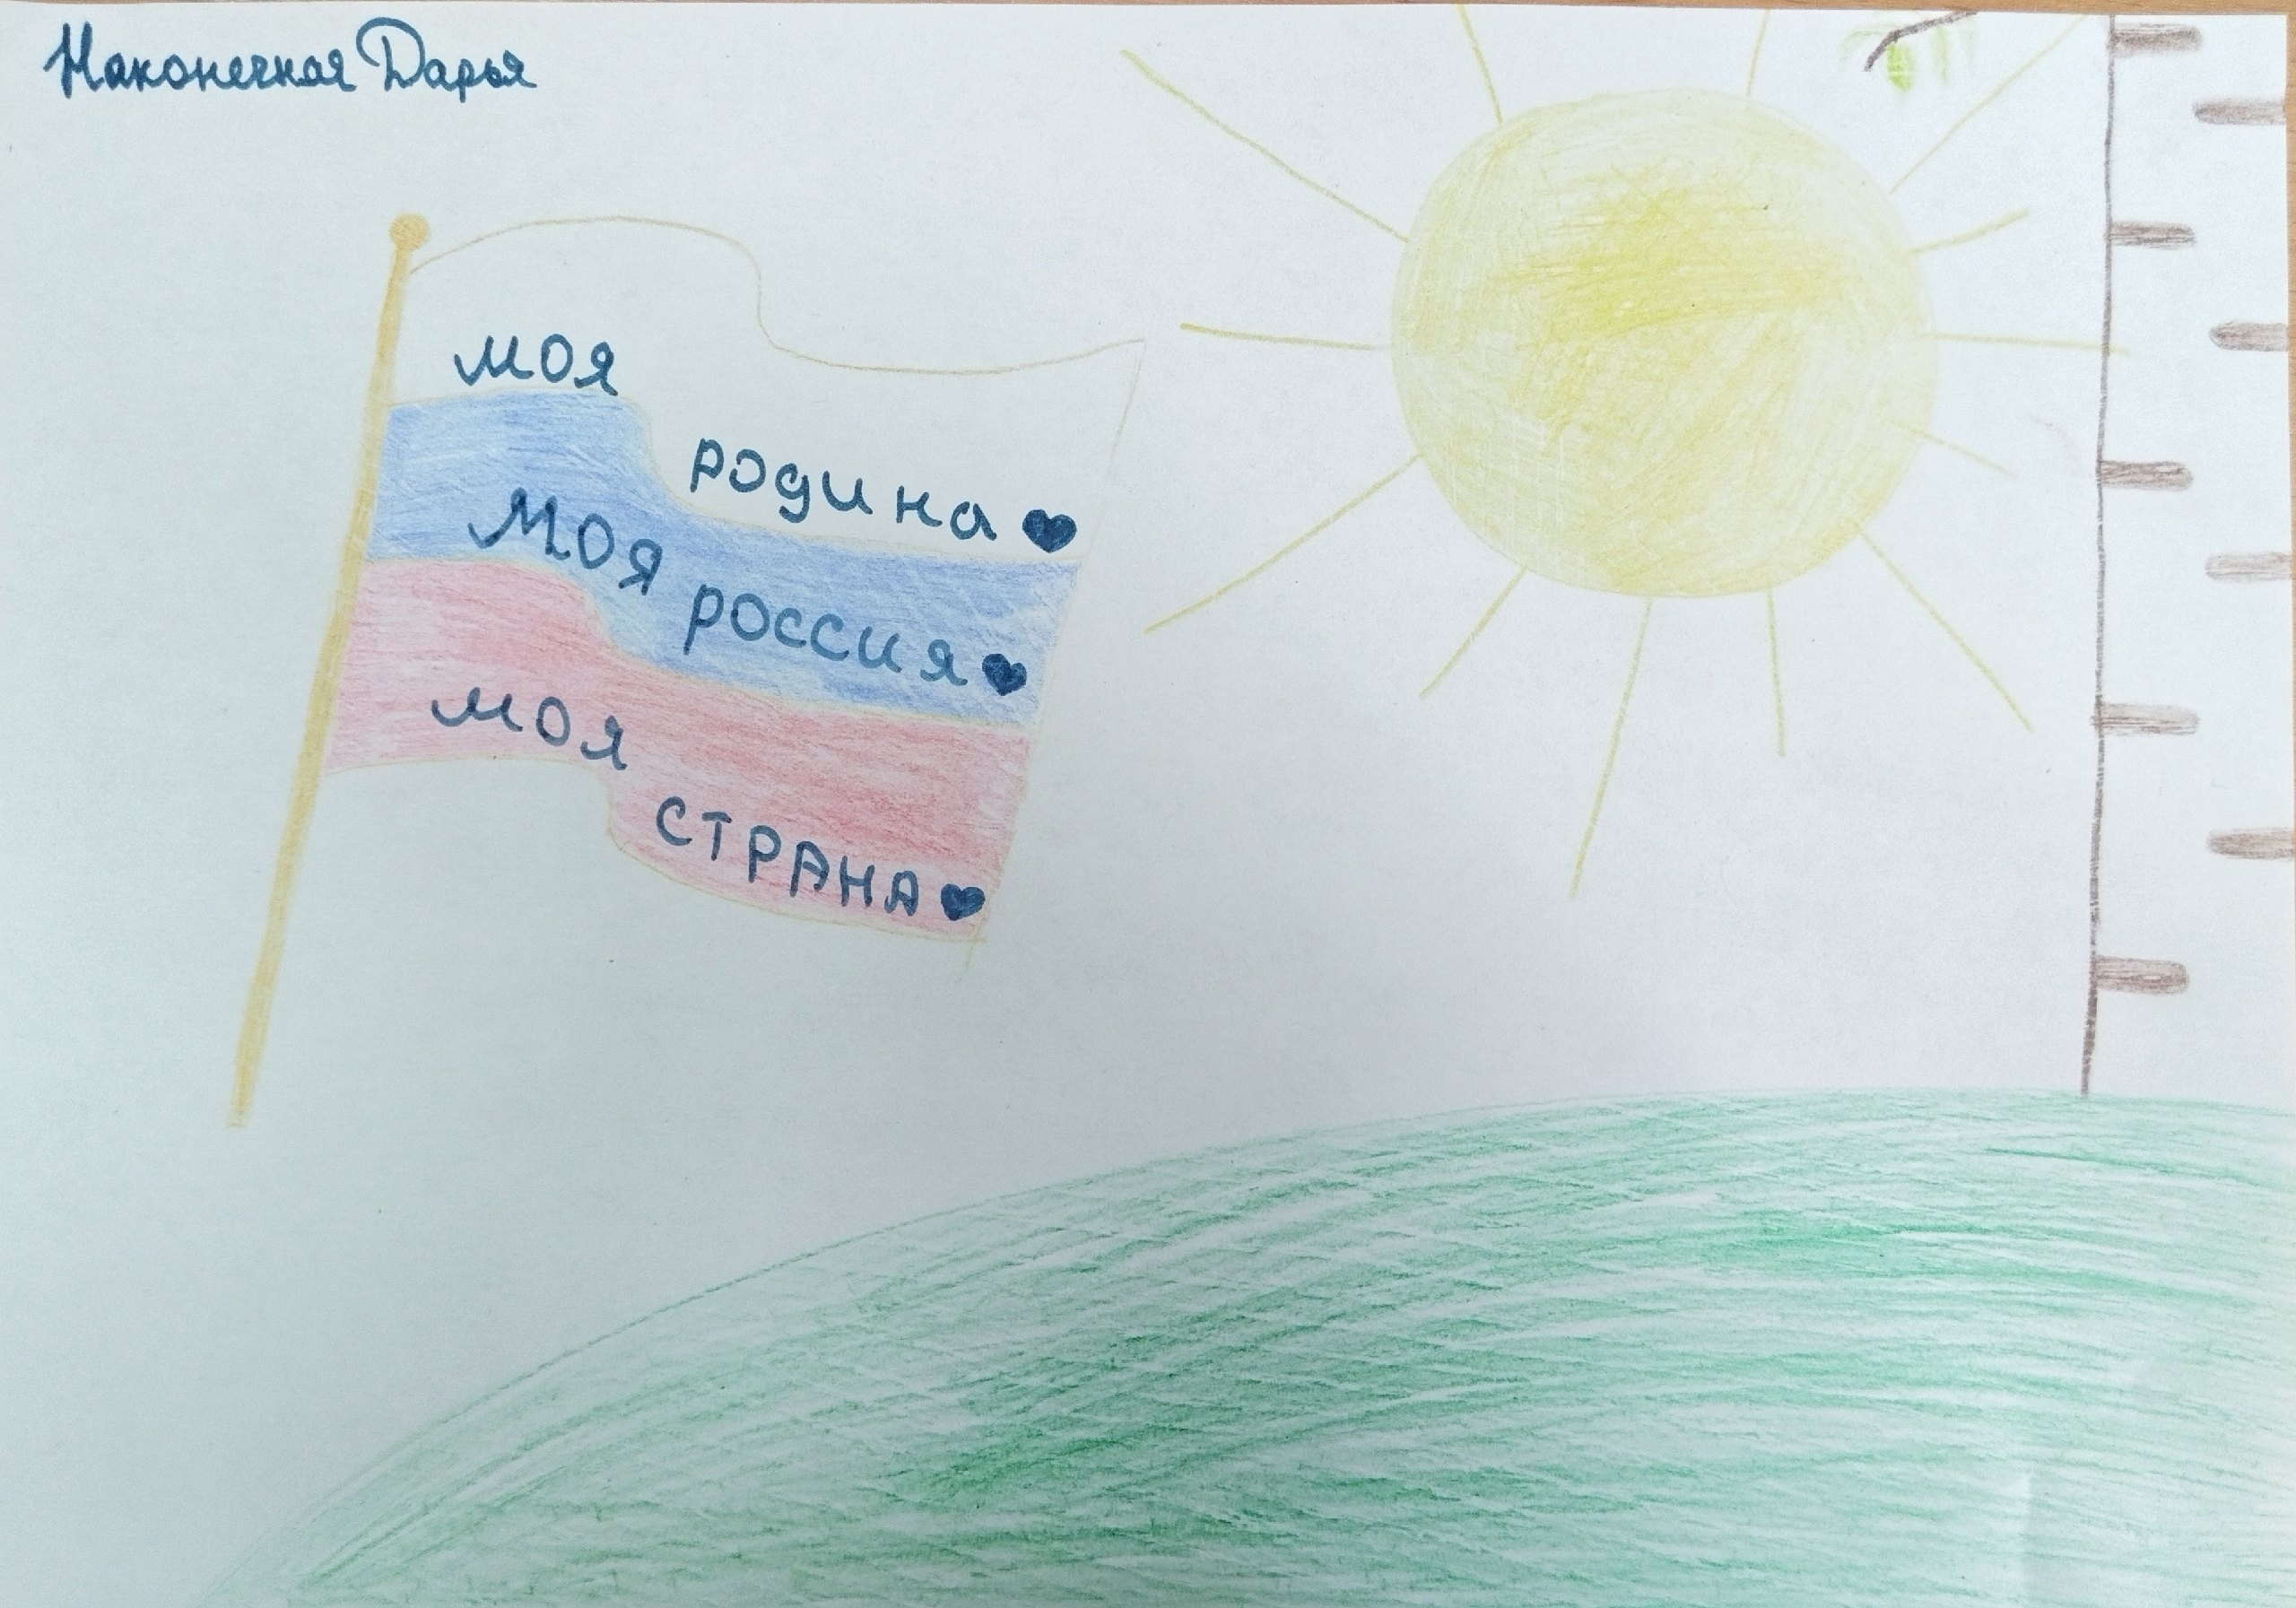 Наконечная Дарья
моя
родина
Моя россия
моя
СТРАНА